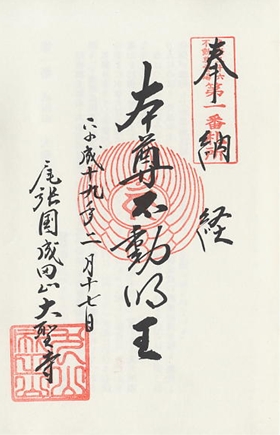 奉納経
第一番札所
本尊不動明王
平成十九年二月十七日
尾張国成田山大聖寺